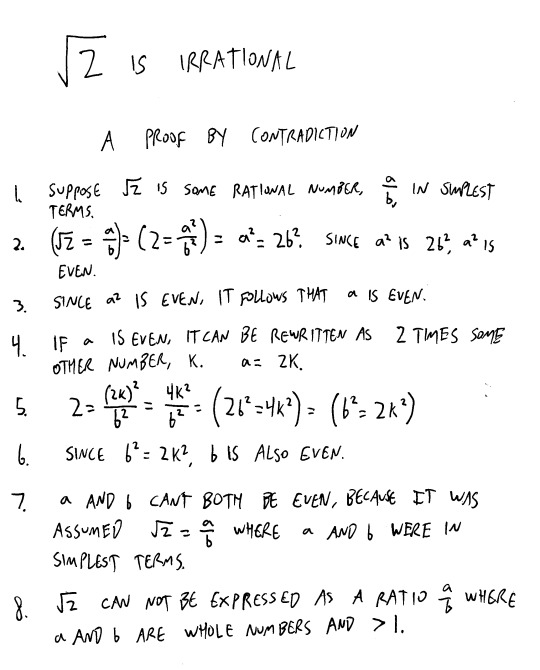 √2 IS IRRATIONAL
A PROOF BY CONTRADICTION
1. SUPPOSE √2 IS SOME RATIONAL NUMBER, a/b, IN SIMPLEST
TERMS.
2. (√2 = a/b) = (2 = a²/b²) = a² = 2b². SINCE a² IS 2b², a² IS
EVEN.
3. SINCE a² IS EVEN, IT FOLLOWS THAT a IS EVEN.
4. IF a IS EVEN, IT CAN BE REWRITTEN AS 2 TIMES SOME
OTHER NUMBER, K. a = 2K.
5. 2 = (2K)²/b² = 4K²/b² = (2b² = 4K²) = (b² = 2K²)
6. SINCE b² = 2K², b IS ALSO EVEN.
7. a AND b CANT BOTH BE EVEN, BECAUSE IT WAS
ASSUMED √2 = a/b WHERE a AND b WERE IN
SIMPLEST TERMS.
8. √2 CAN NOT BE EXPRESSED AS A RATIO a/b WHERE
a AND b ARE WHOLE NUMBERS AND > 1.